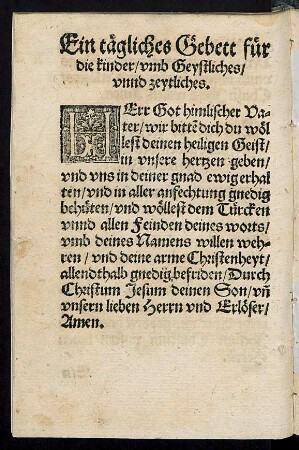 Ein tägliches Gebett für
die kinder/vmb Geystliches/
vnnd zeytliches.
HErr Got himlischer Va-
ter/wir bittē dich du wöl
lest deinen heiligen Geist/
in vnsere hertzen geben/
vnd vns in deiner gnad ewig erhal
ten/vnd in aller anfechtung gnedig
behüten/vnd wöllest dem Türcken
vnnd allen Feinden deines worts/
vmb deines Namens willen weh-
ren/vnd deine arme Christenheyt/
allendthalb gnedig befriden/Durch
Christum Jesum deinen Son/vñ
vnsern lieben Herrn vnd Erlöser/
Amen.